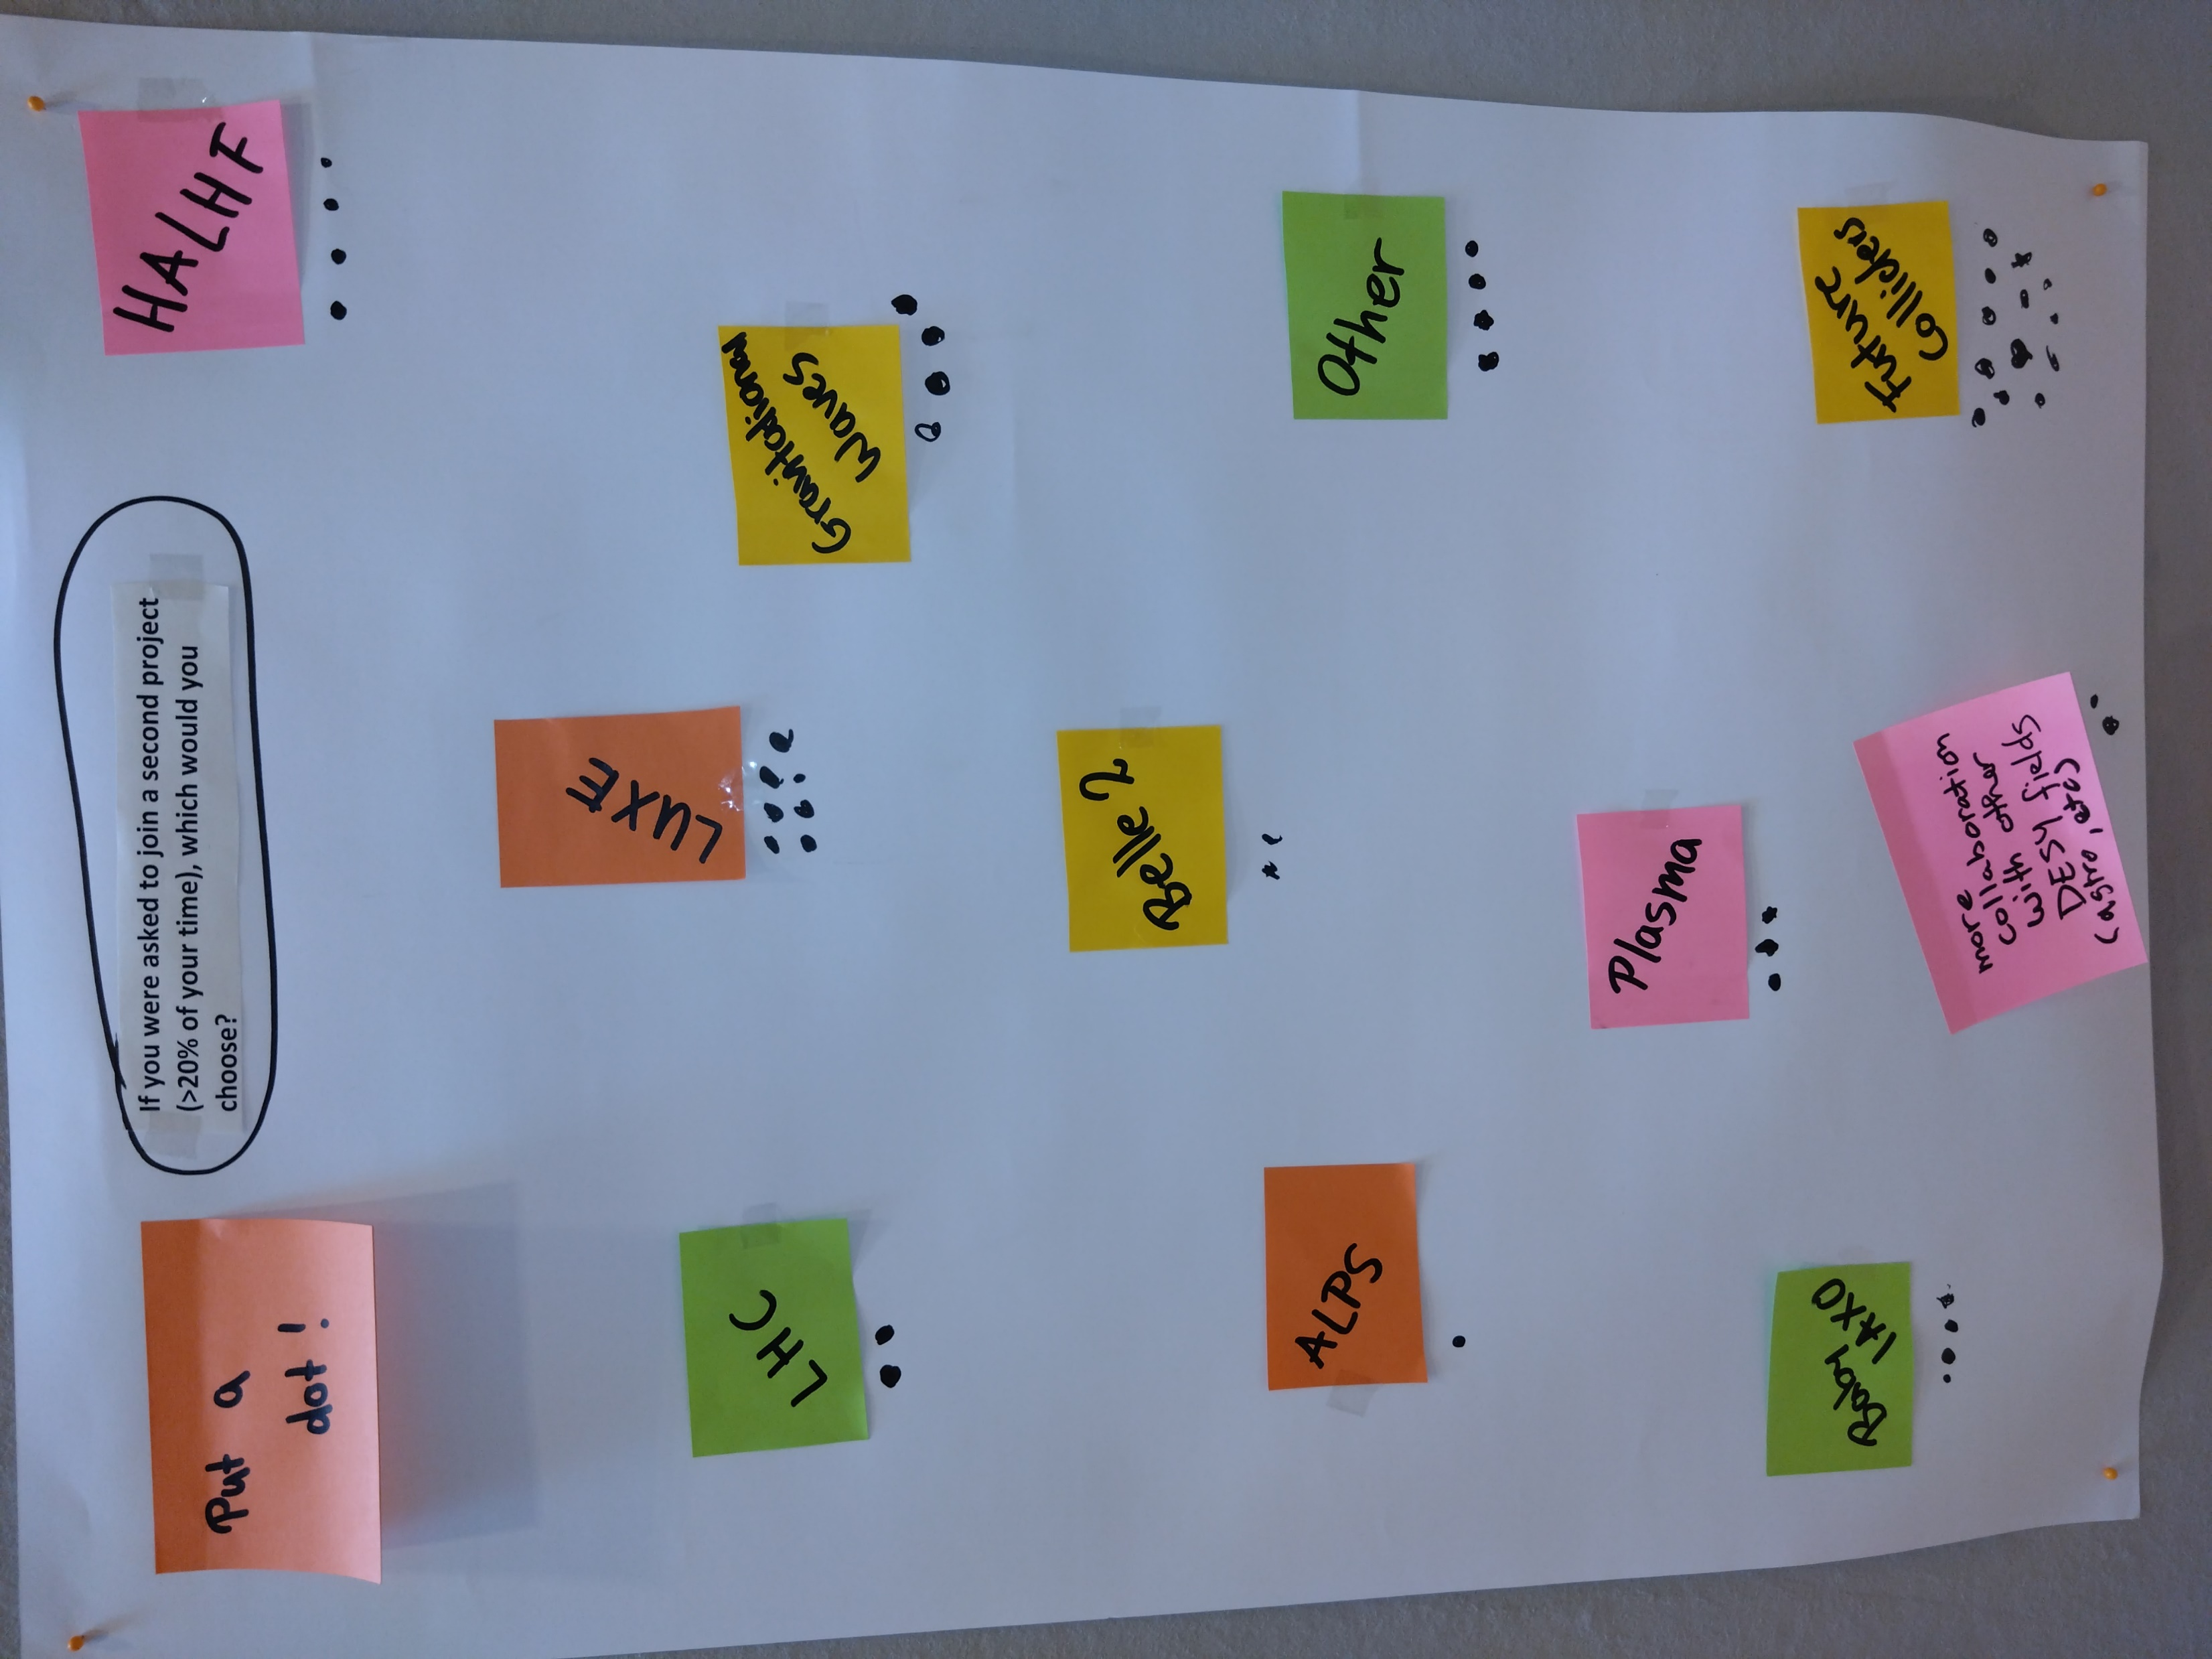 Put a
dot!
If you were asked to join a second project
(>20% of your time), which would you
choose?
HALHF
LUXE
LHC
Gravitational
Waves
Belle 2
ALPS
Other
Plasma
Baby
IAXO
Future
Colliders
more
collaboration
with other
DESY fields
(astro, etc)